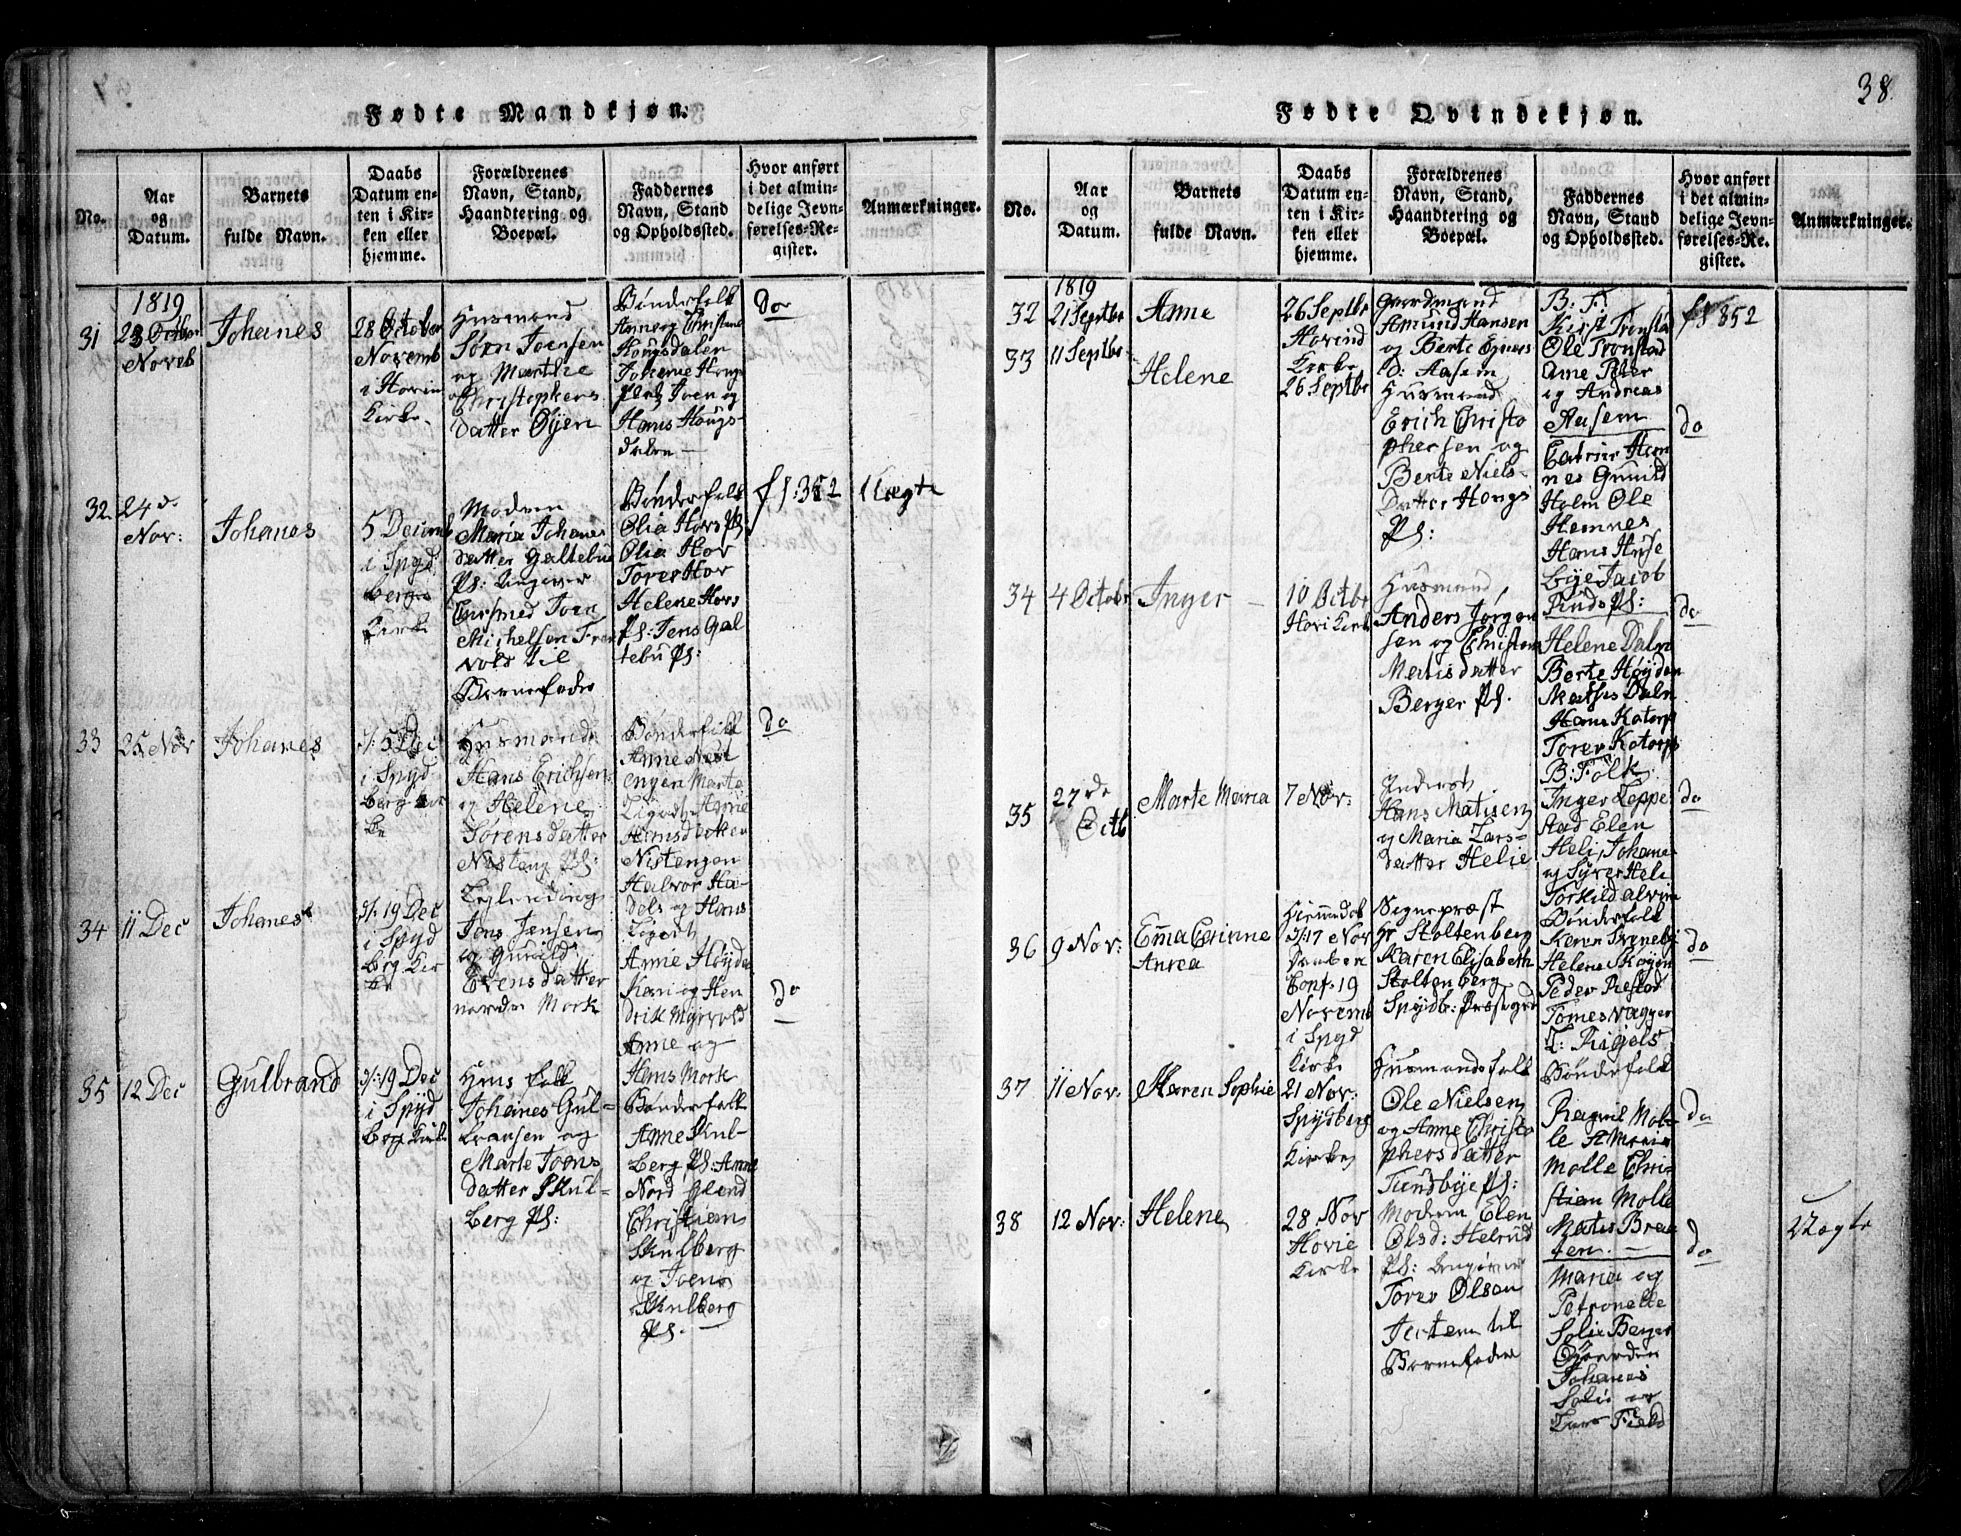 38.
Fødte Mandkjøn.
No.
Aar
og
Datum.
Barnets
fulde Navn.
Daabs
Datum en-
ten i Kir-
ken eller
hjemme.
Forældrenes
Navn, Stand,
Haandtering og
Boepæl.
Faddernes
Navn, Stand
og Opholdssted.
Hvor anført
i det almin-
delige Jevn-
førelses-Re-
gister.
Anmærkninger.
1819
31
Noveb
Johanes
28 October
Novemb
i Hovin
Kirke.
Husmand
Sørn Joensen
og Marthe
Christophers
datter Øyen
Bønderfolk
Anne og Christiane
Hougsdalen
Johanne Houg
Joen og
Hans Hougs-
dalen
do
32
24 d.
Nov:
Johanes
5 Decmb
i Spyd
bergs
Kirke
Modren
Maria Johanes
datter Galtebu
Ps: Angiver
Joen
Michelsen
til
Barnefader
Bønderfolk
Olia Hovs Ps:
Olia Hov
Torer Hov
Helene Hovs
Ps: Jens Gal
tebu Ps:
f 1:352
1 Uægte
33
25 Nov
Johanes
5 Dec
i Spyd
berg Kir
ke
Husmand
Hans Erichsen
og Helene
Sørensdatter
Nisteng Ps:
Bønderfolk
Anne Nest
engen Marte
Hansdatter
Nistengen
Halvor Ha-
dels og Hans
do
34
11 Dec
Johanes
19 Dec
i Spyd
berg Kir
ke
Jons Jensen
og Gunild
Evensdatter
nordre Mork
Anne Høyden
Kari og Hen
drik Myrvold
Anne og
Hans Mork
do
35
12 Dec
Gulbrand
19 Dec
i Spyd
berg Kirke
Huus folk
Johanes Gul-
bransen og
Marte Joens
datter Skul-
berg Ps:
Bønderfolk
Anne Skul-
berg Ps: Anne
Nord Glend
Christian
Skulberg
og Joens
Skulberg
Ps.
Fødte Qvindekjøn.
No.
Aar
og
Datum.
Barnets
fulde Navn.
Daabs
Datum en-
ten i Kir-
ken eller
hjemme.
Forældrenes
Navn, Stand,
Haandtering og
Boepæl.
Faddernes
Navn, Stand
og Opholdssted.
Hvor anført
i det almin-
delige Jevn-
førelses-Re-
gister.
Anmærkninger.
1819
32
21 Septbr
Anne
26 Septbr
Hovind
Kirke
Gaardmand
Amund Hansen
og Berte Ejners
d: Aasem
B: F:
Kirst Tronsta
Ole Tronstad
Ane Peter
og Andreas
Aasem
f 1 852
33
11 Septbr
Helene
26 Septbr
Husmand
Erich Christo
phersen og
Berte Niels-
datter Hougs
Ps:
Catrine Hem
nes Gunild
Holm Ole
Hemnes
Hans Huse
bye Jacob
Ps:
do
34
4 Octobr
Inger
10 Octbr
Hovi Kirke
Husmand,
Anders Jørgen
sen og Christen
Matisdatter
Berger Ps.
Helene Daln
Berte Høyden
Mathis Daln
Hans Katorp
Torer Katorp
do
35
27 de
Octb
Marte Maria
7 Nov:
Inderst
Hans Matisen
og Maria Lars-
datter Helie
B: Folk
Inger Teppe
stad Elen
Heli, Johane
og Syver Heli
Torkild
do
36
9 Nov:
Emma Corinne
Anrea
Hiemmedøb
17 Nov
Conf: 19
Novemb
i Spyd
Kirke
Sognepræst
Hr Stoltenberg
Karen Elisabeth
Stoltenberg
Spydb: Præstegrd
Bønderfolk
Karen Svenebye
Helene Skøyen
Peder Præstad
Tomes Vagger
L: Rigels
do
37
11 Nov:
Karen Sophie
21 Nov:
Spydberg
Kirke
Husmandsfolk
Ole Nielsen
og Anne Christo
phersdatter
Tundbye Ps:
Bønderfolk
Ragnil Mol-
le A Maria
Molle Chri-
stian Molle
Matis Braa
ten.
do
38
12 Nov:
Helene
28 Nov
Hovie
Kirke
Modren Elen
Olsd: Helrud
Ps:
Torer Olsen
til
Barnefader
Maria og
Petronelle
Solie Berger
Johanes
Solie og
Lars
do
2 Uægte